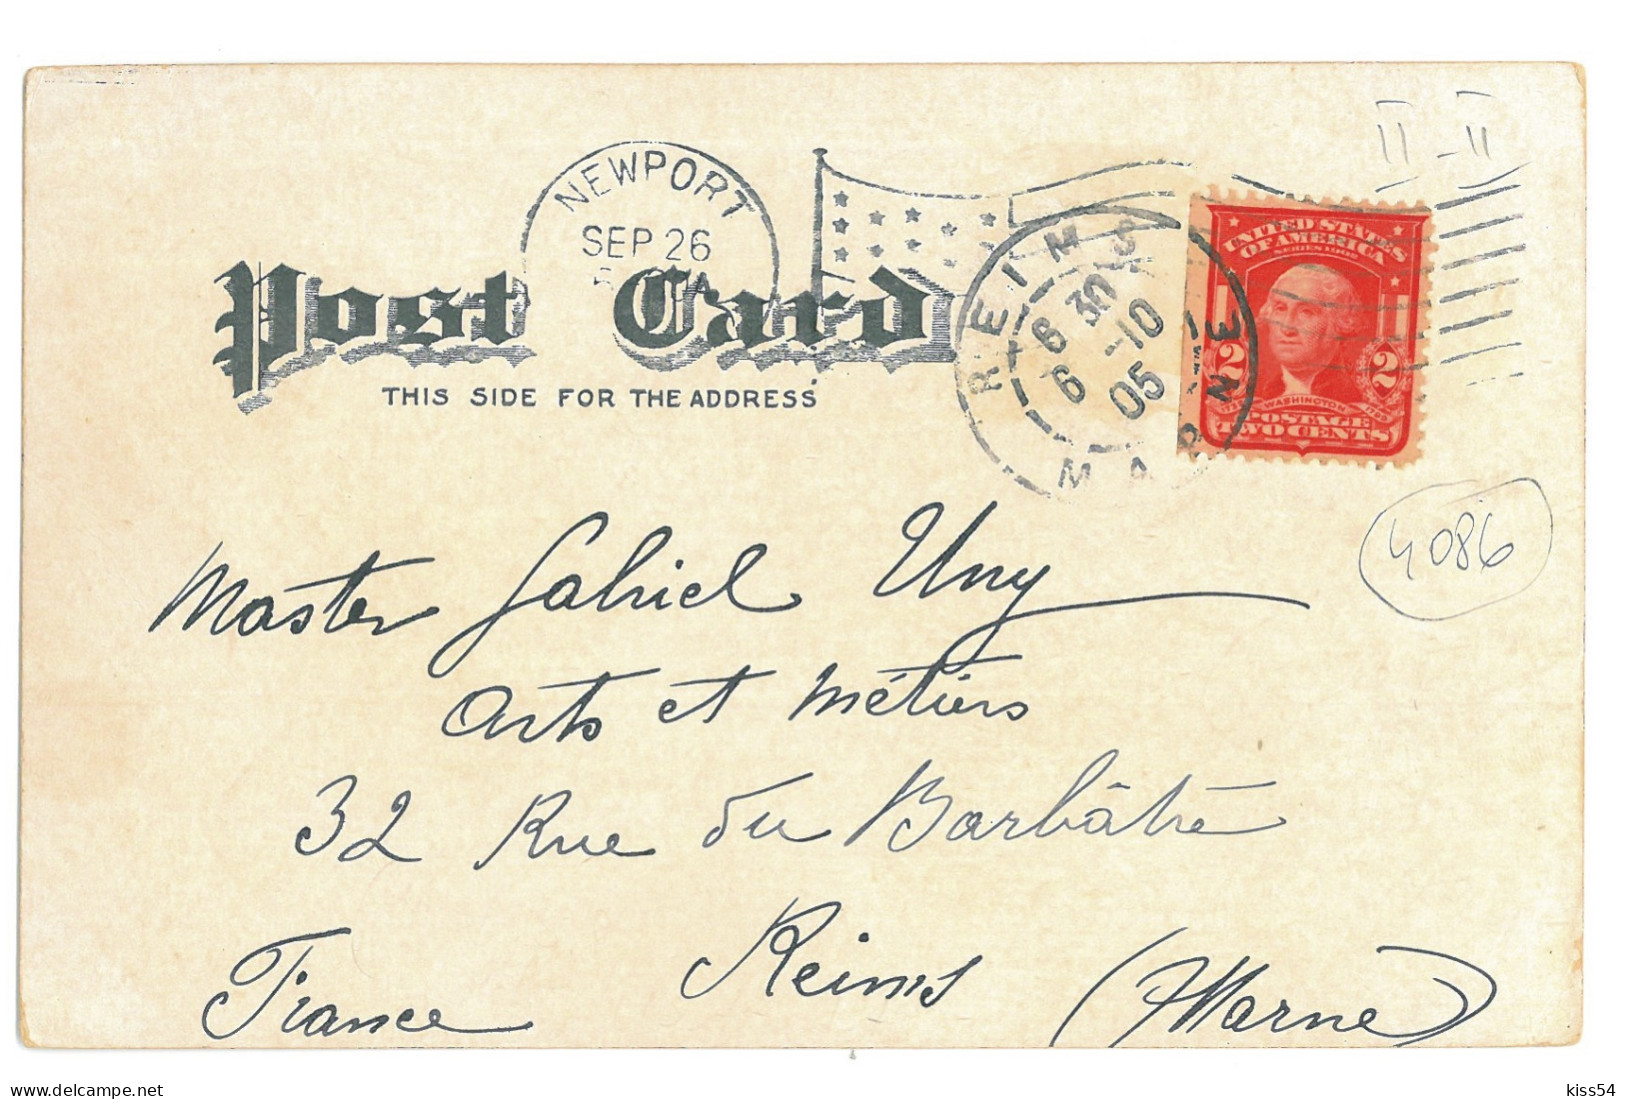 II - II
NEWPORT
SEP 26
Post Card
THIS SIDE FOR THE ADDRESS
REIMS
6 30
6 -10
05
MARNE
UNITED STATES
OF AMERICA
SERIES 1902
2 2
WASHINGTON
POSTAGE
TWO CENTS
4086
Master Gabriel Uny
Arts et Métiers
32 Rue du Barbâtre
Reims (Marne)
France
delcampe.net
kiss54